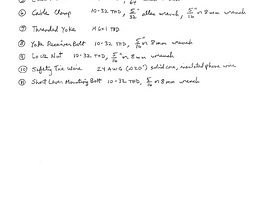 64
⑥ Cable Clamp 10-32 THD, 5/32 allen wrench, 5/16 or 8mm wrench
⑦ Threaded Yoke M6x1 THD
⑧ Yoke Receiver Bolt 10-32 THD, 5/16 or 8mm wrench
⑨ Lock Nut 10-32 THD, 5/16 or 8mm wrench
⑩ Safety Tie wire 24 AWG (.020"), solid core, insulated phone wire
⑪ Short Lower Mounting Bolt 10-32 THD, 5/16 or 8mm wrench